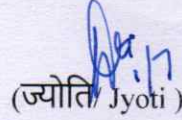 (ज्योति/ Jyoti )